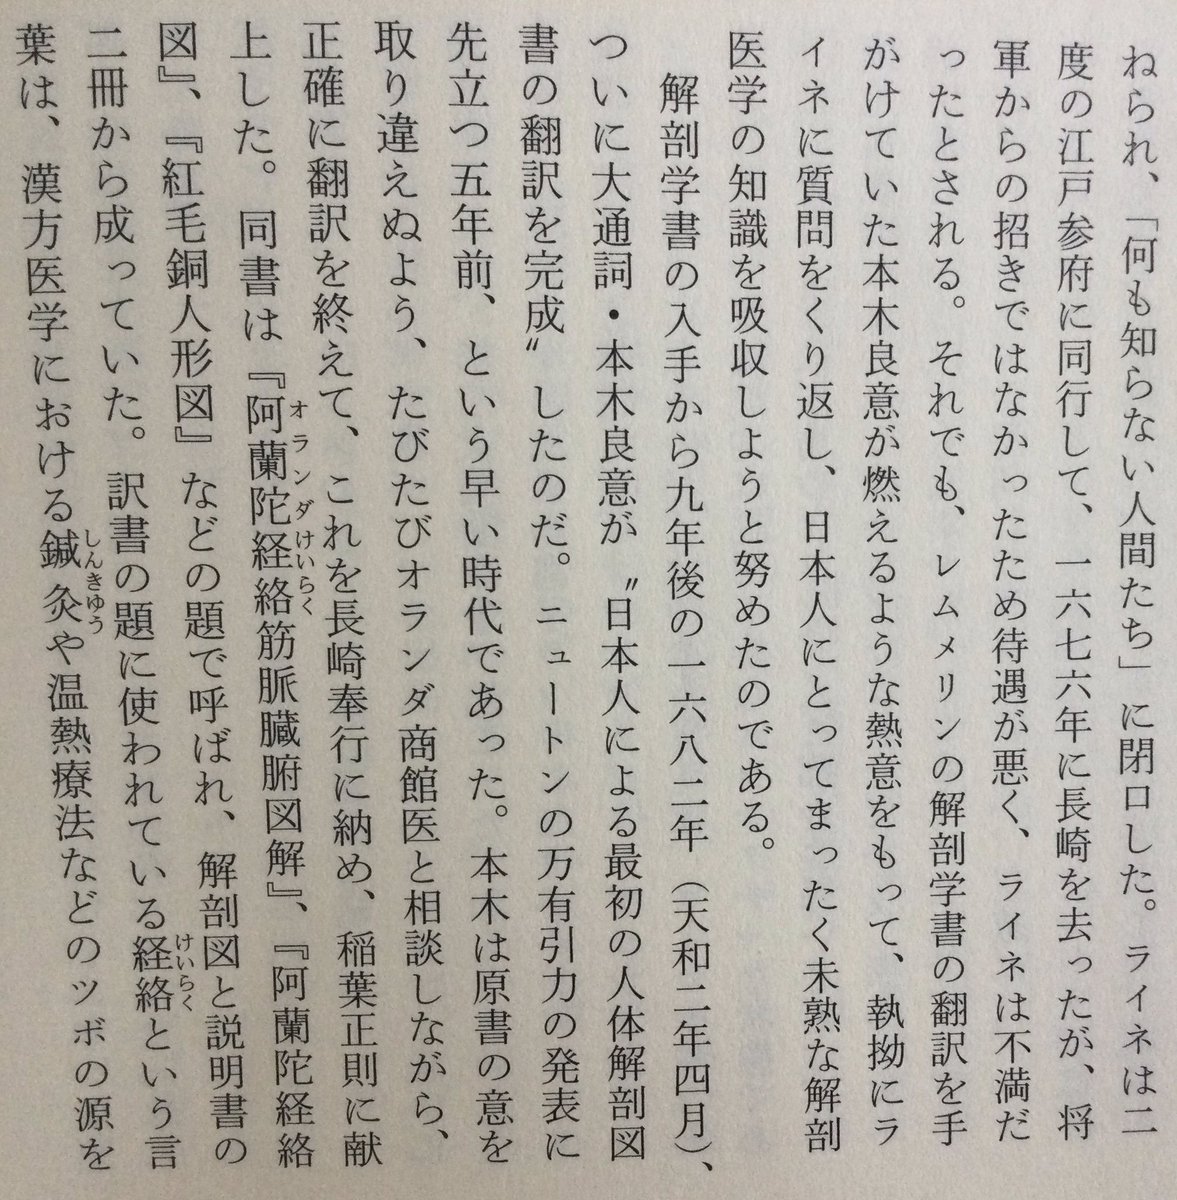 ねられ、「何も知らない人間たち」に閉口した。ライネは二
度の江戸参府に同行して、一六七六年に長崎を去ったが、将
軍からの招きではなかったため待遇が悪く、ライネは不満だ
ったとされる。それでも、レムメリンの解剖学書の翻訳を手
がけていた本木良意が燃えるような熱意をもって、執拗にラ
イネに質問をくり返し、日本人にとってまったく未熟な解剖
医学の知識を吸収しようと努めたのである。
解剖学書の入手から九年後の一六八二年（天和二年四月）、
ついに大通詞・本木良意が〝日本人による最初の人体解剖図
書の翻訳を完成〟したのだ。ニュートンの万有引力の発表に
先立つ五年前、という早い時代であった。本木は原書の意を
取り違えぬよう、たびたびオランダ商館医と相談しながら、
正確に翻訳を終えて、これを長崎奉行に納め、稲葉正則に献
上した。同書は『阿蘭陀経絡筋脈臓腑図解』、『阿蘭陀経絡
オランダけいらく
図』、『紅毛銅人形図』などの題で呼ばれ、解剖図と説明書の
二冊から成っていた。訳書の題に使われている経絡という言
けいらく
葉は、漢方医学における鍼灸や温熱療法などのツボの源を
しんきゆう